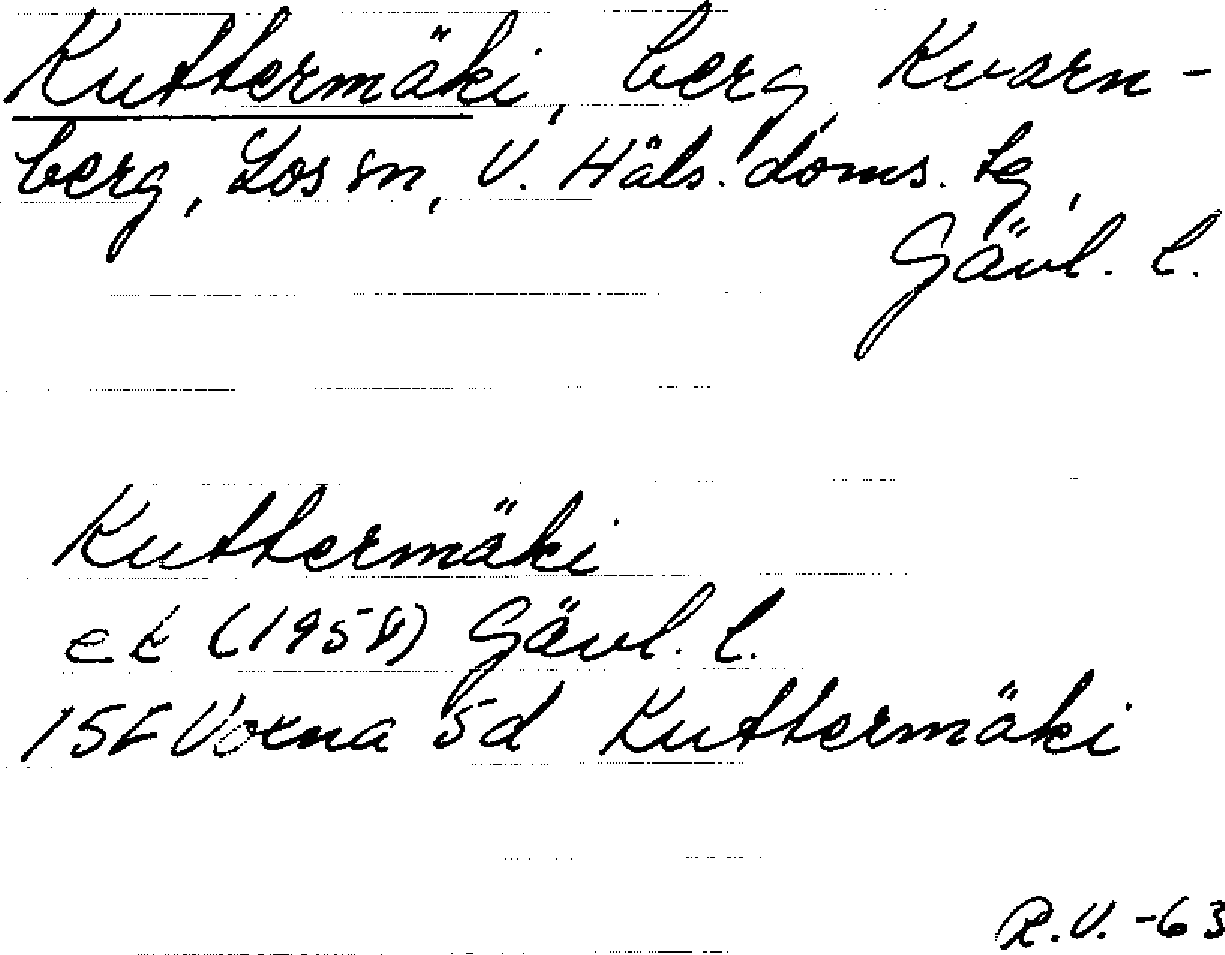 Kuttermäki, berg, Kvarn-
berg, Los sn, V. Häls. doms. tg,
Gävl. l.
Kuttermäki
ek (1958) Gävl. l.
15F Voxna 5d Kuttermäki
R.V. -63